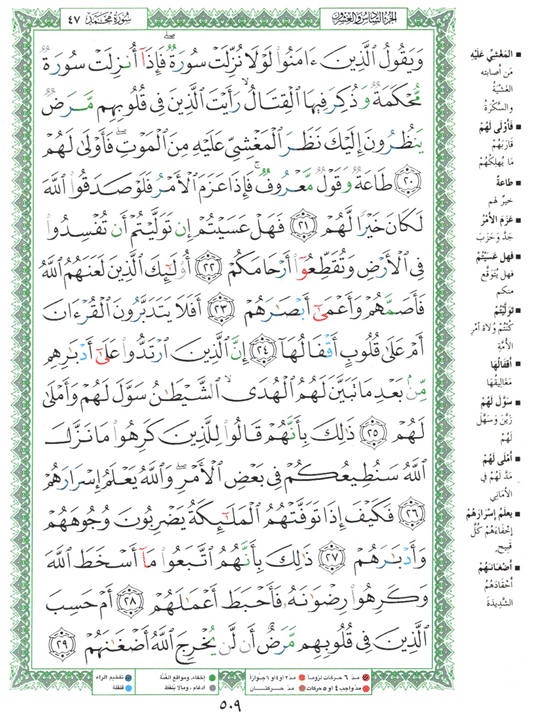 سُورَةُ مُحَمَّد ٤٧
الجُزءُ السَّادِسُ وَالعِشْرُونَ
وَيَقُولُ ٱلَّذِينَ ءَامَنُوا۟ لَوْلَا نُزِّلَتْ سُورَةٌ ۖ فَإِذَآ أُنزِلَتْ سُورَةٌ
مُّحْكَمَةٌ وَذُكِرَ فِيهَا ٱلْقِتَالُ ۙ رَأَيْتَ ٱلَّذِينَ فِى قُلُوبِهِم مَّرَضٌ
يَنظُرُونَ إِلَيْكَ نَظَرَ ٱلْمَغْشِىِّ عَلَيْهِ مِنَ ٱلْمَوْتِ ۖ فَأَوْلَىٰ لَهُمْ
٢٠ طَاعَةٌ وَقَوْلٌ مَّعْرُوفٌ ۚ فَإِذَا عَزَمَ ٱلْأَمْرُ فَلَوْ صَدَقُوا۟ ٱللَّهَ
لَكَانَ خَيْرًا لَّهُمْ ٢١ فَهَلْ عَسَيْتُمْ إِن تَوَلَّيْتُمْ أَن تُفْسِدُوا۟
فِى ٱلْأَرْضِ وَتُقَطِّعُوٓا۟ أَرْحَامَكُمْ ٢٢ أُو۟لَٰٓئِكَ ٱلَّذِينَ لَعَنَهُمُ ٱللَّهُ
فَأَصَمَّهُمْ وَأَعْمَىٰٓ أَبْصَٰرَهُمْ ٢٣ أَفَلَا يَتَدَبَّرُونَ ٱلْقُرْءَانَ
أَمْ عَلَىٰ قُلُوبٍ أَقْفَالُهَآ ٢٤ إِنَّ ٱلَّذِينَ ٱرْتَدُّوا۟ عَلَىٰٓ أَدْبَٰرِهِم
مِّنۢ بَعْدِ مَا تَبَيَّنَ لَهُمُ ٱلْهُدَى ۙ ٱلشَّيْطَٰنُ سَوَّلَ لَهُمْ وَأَمْلَىٰ
لَهُمْ ٢٥ ذَٰلِكَ بِأَنَّهُمْ قَالُوا۟ لِلَّذِينَ كَرِهُوا۟ مَا نَزَّلَ
ٱللَّهُ سَنُطِيعُكُمْ فِى بَعْضِ ٱلْأَمْرِ ۖ وَٱللَّهُ يَعْلَمُ إِسْرَارَهُمْ
٢٦ فَكَيْفَ إِذَا تَوَفَّتْهُمُ ٱلْمَلَٰٓئِكَةُ يَضْرِبُونَ وُجُوهَهُمْ
وَأَدْبَٰرَهُمْ ٢٧ ذَٰلِكَ بِأَنَّهُمُ ٱتَّبَعُوا۟ مَآ أَسْخَطَ ٱللَّهَ
وَكَرِهُوا۟ رِضْوَٰنَهُۥ فَأَحْبَطَ أَعْمَٰلَهُمْ ٢٨ أَمْ حَسِبَ
ٱلَّذِينَ فِى قُلُوبِهِم مَّرَضٌ أَن لَّن يُخْرِجَ ٱللَّهُ أَضْغَٰنَهُمْ ٢٩
■ المَغْشِيِّ عَلَيْهِ
مَن أصابته
الغَشْيَةُ
والسَّكْرَةُ
■ فَأَوْلَى لَهُمْ
قَارَبَهُمْ
مَا يُهْلِكُهُمْ
■ طَاعَةٌ
خيرٌ لهم
■ عَزَمَ الأَمْرُ
جَدَّ وَحَزَبَ
■ فهل عَسَيْتُمْ
فهل يُتَوَقَّع
منكم
■ تَوَلَّيْتُمْ
كُنْتُمْ وُلاةَ أمْرِ
الأُمَّةِ
■ أقْفَالُهَا
مَغَالِيقُهَا
■ سَوَّلَ لَهُمْ
زَيَّنَ وَسَهَّلَ
لَهُمْ
■ أَمْلَى لَهُمْ
مَدَّ لَهُمْ فِي
الأَمَانِي
■ يعلمُ إسْرَارَهُمْ
إخْفَاءَهُمْ كُلَّ
قَبِيحٍ
■ أضْغَانَهُمْ
أحْقَادَهُمُ
الشَّدِيدَةَ
مدّ ٦ حركات لزوماً
مدّ ٢ أو ٤ أو ٦ جوازاً
إخفاء، ومواقع الغُنَّة
تفخيم الراء
مدّ واجب ٤ أو ٥ حركات
مدّ حركتان
إدغام، وما لا يُلفظ
قلقلة
٥٠٩